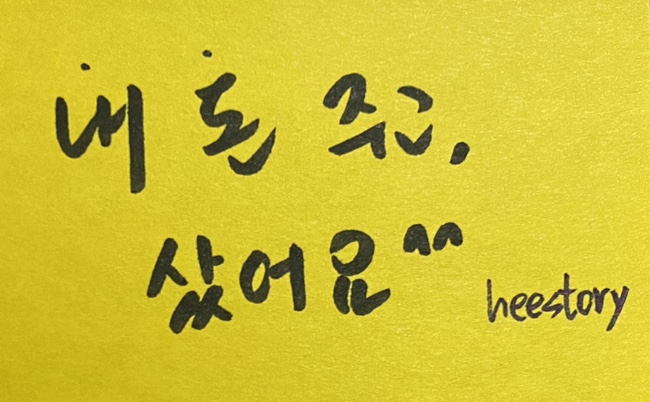 내 돈 주고,
샀어요^^
heestory